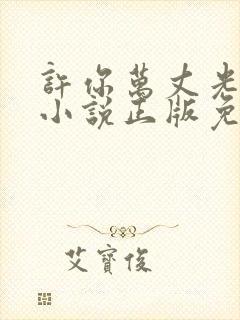 許你萬丈光
小說正版免
艾寶俊